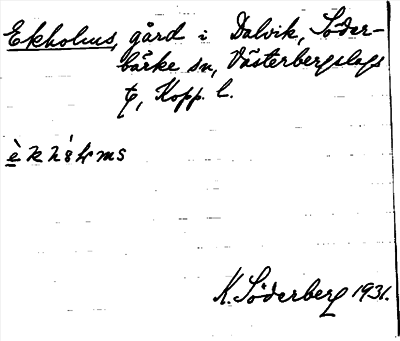 Ekholms, gård i Dalvik, Söder-
bärke sn, Västerbergslags
tg, Kopp. l.
K. Söderberg 1931.